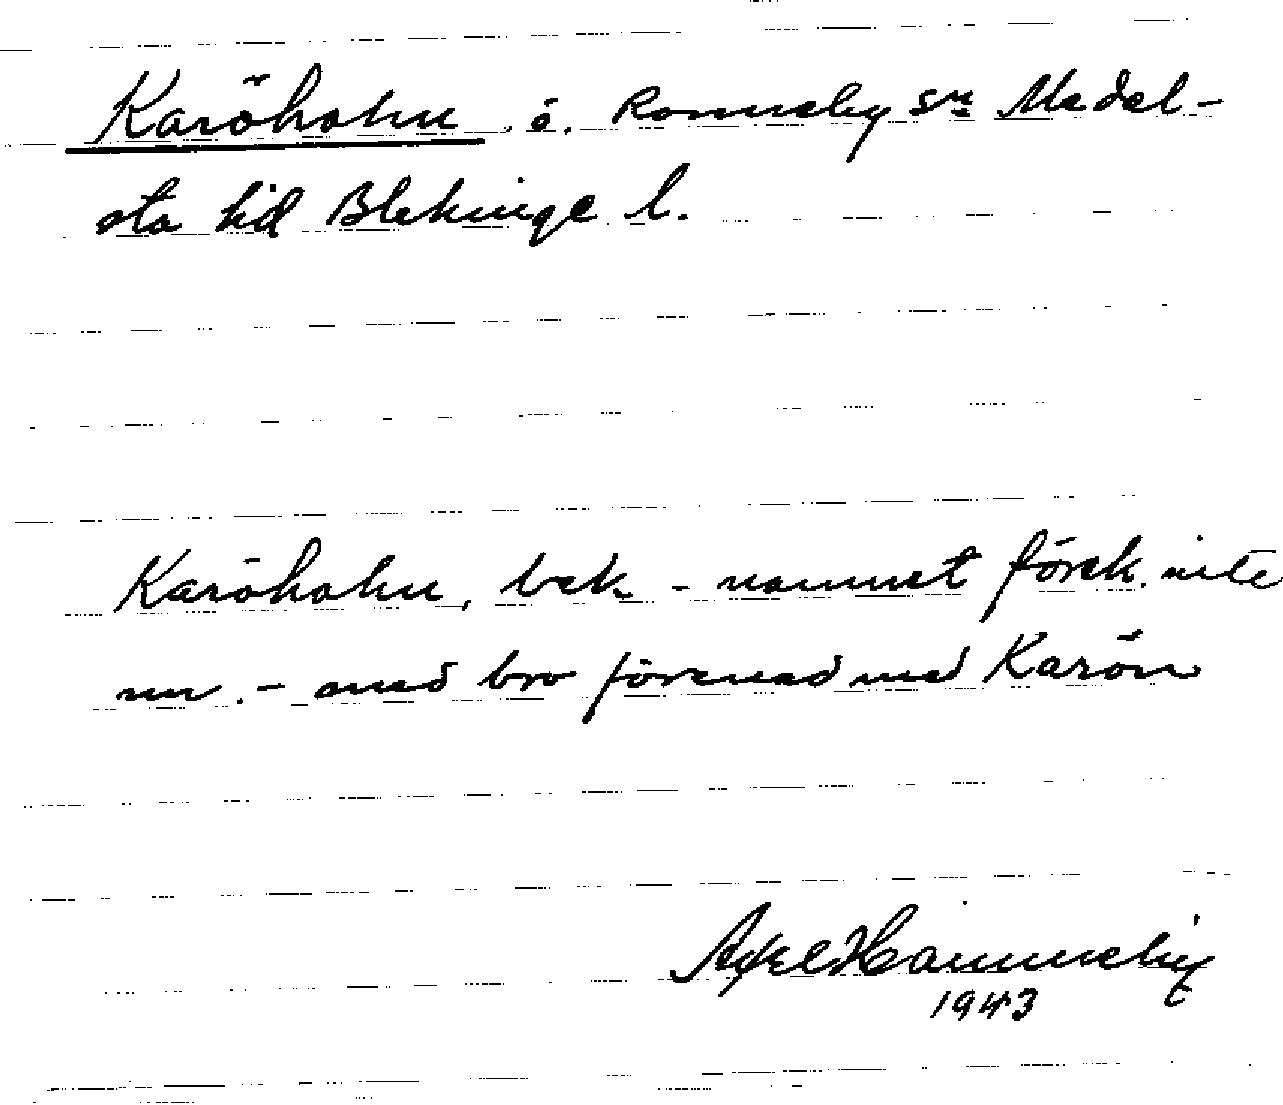 Karöholm, ö. Ronneby sn Medel-
sta hd Blekinge l.
Karöholm, bek. - namnet förek. inte
nu. - med bro förenad med Karön
Axel Hammeby
1943